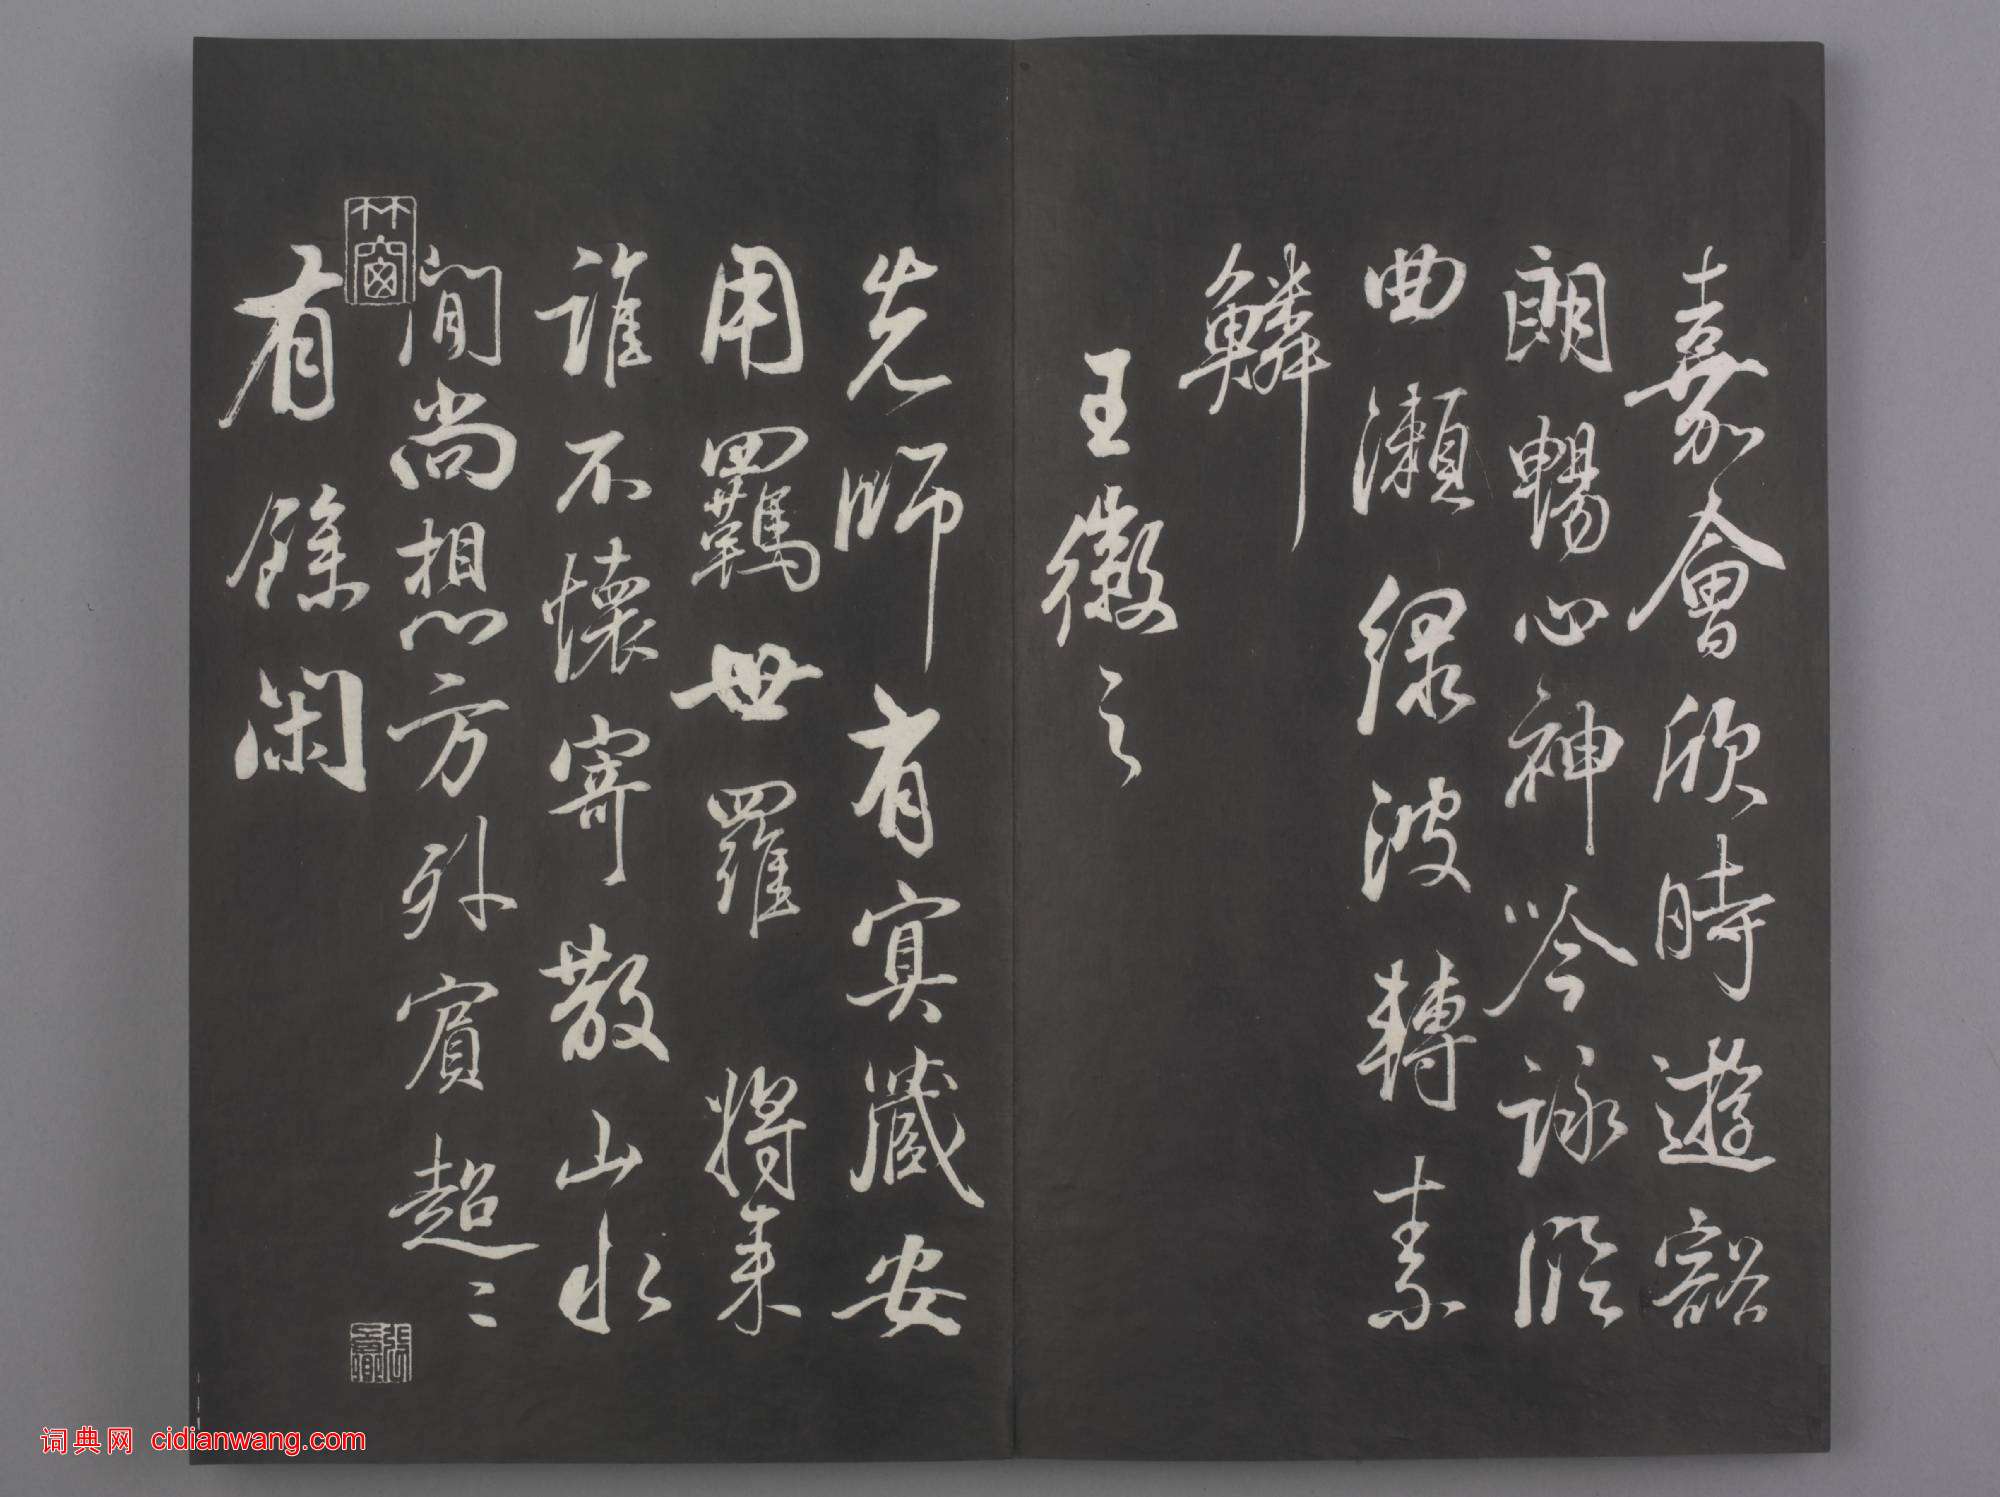 嘉會欣時遊豁
朗暢心神吟詠
曲瀨綠波轉素
鱗
王徽之
先師有冥藏安
用羈世羅將來
誰不懷寄散山水
間尚想方外賓超〻
有餘閑
竹窗
词典网 cidianwang.com